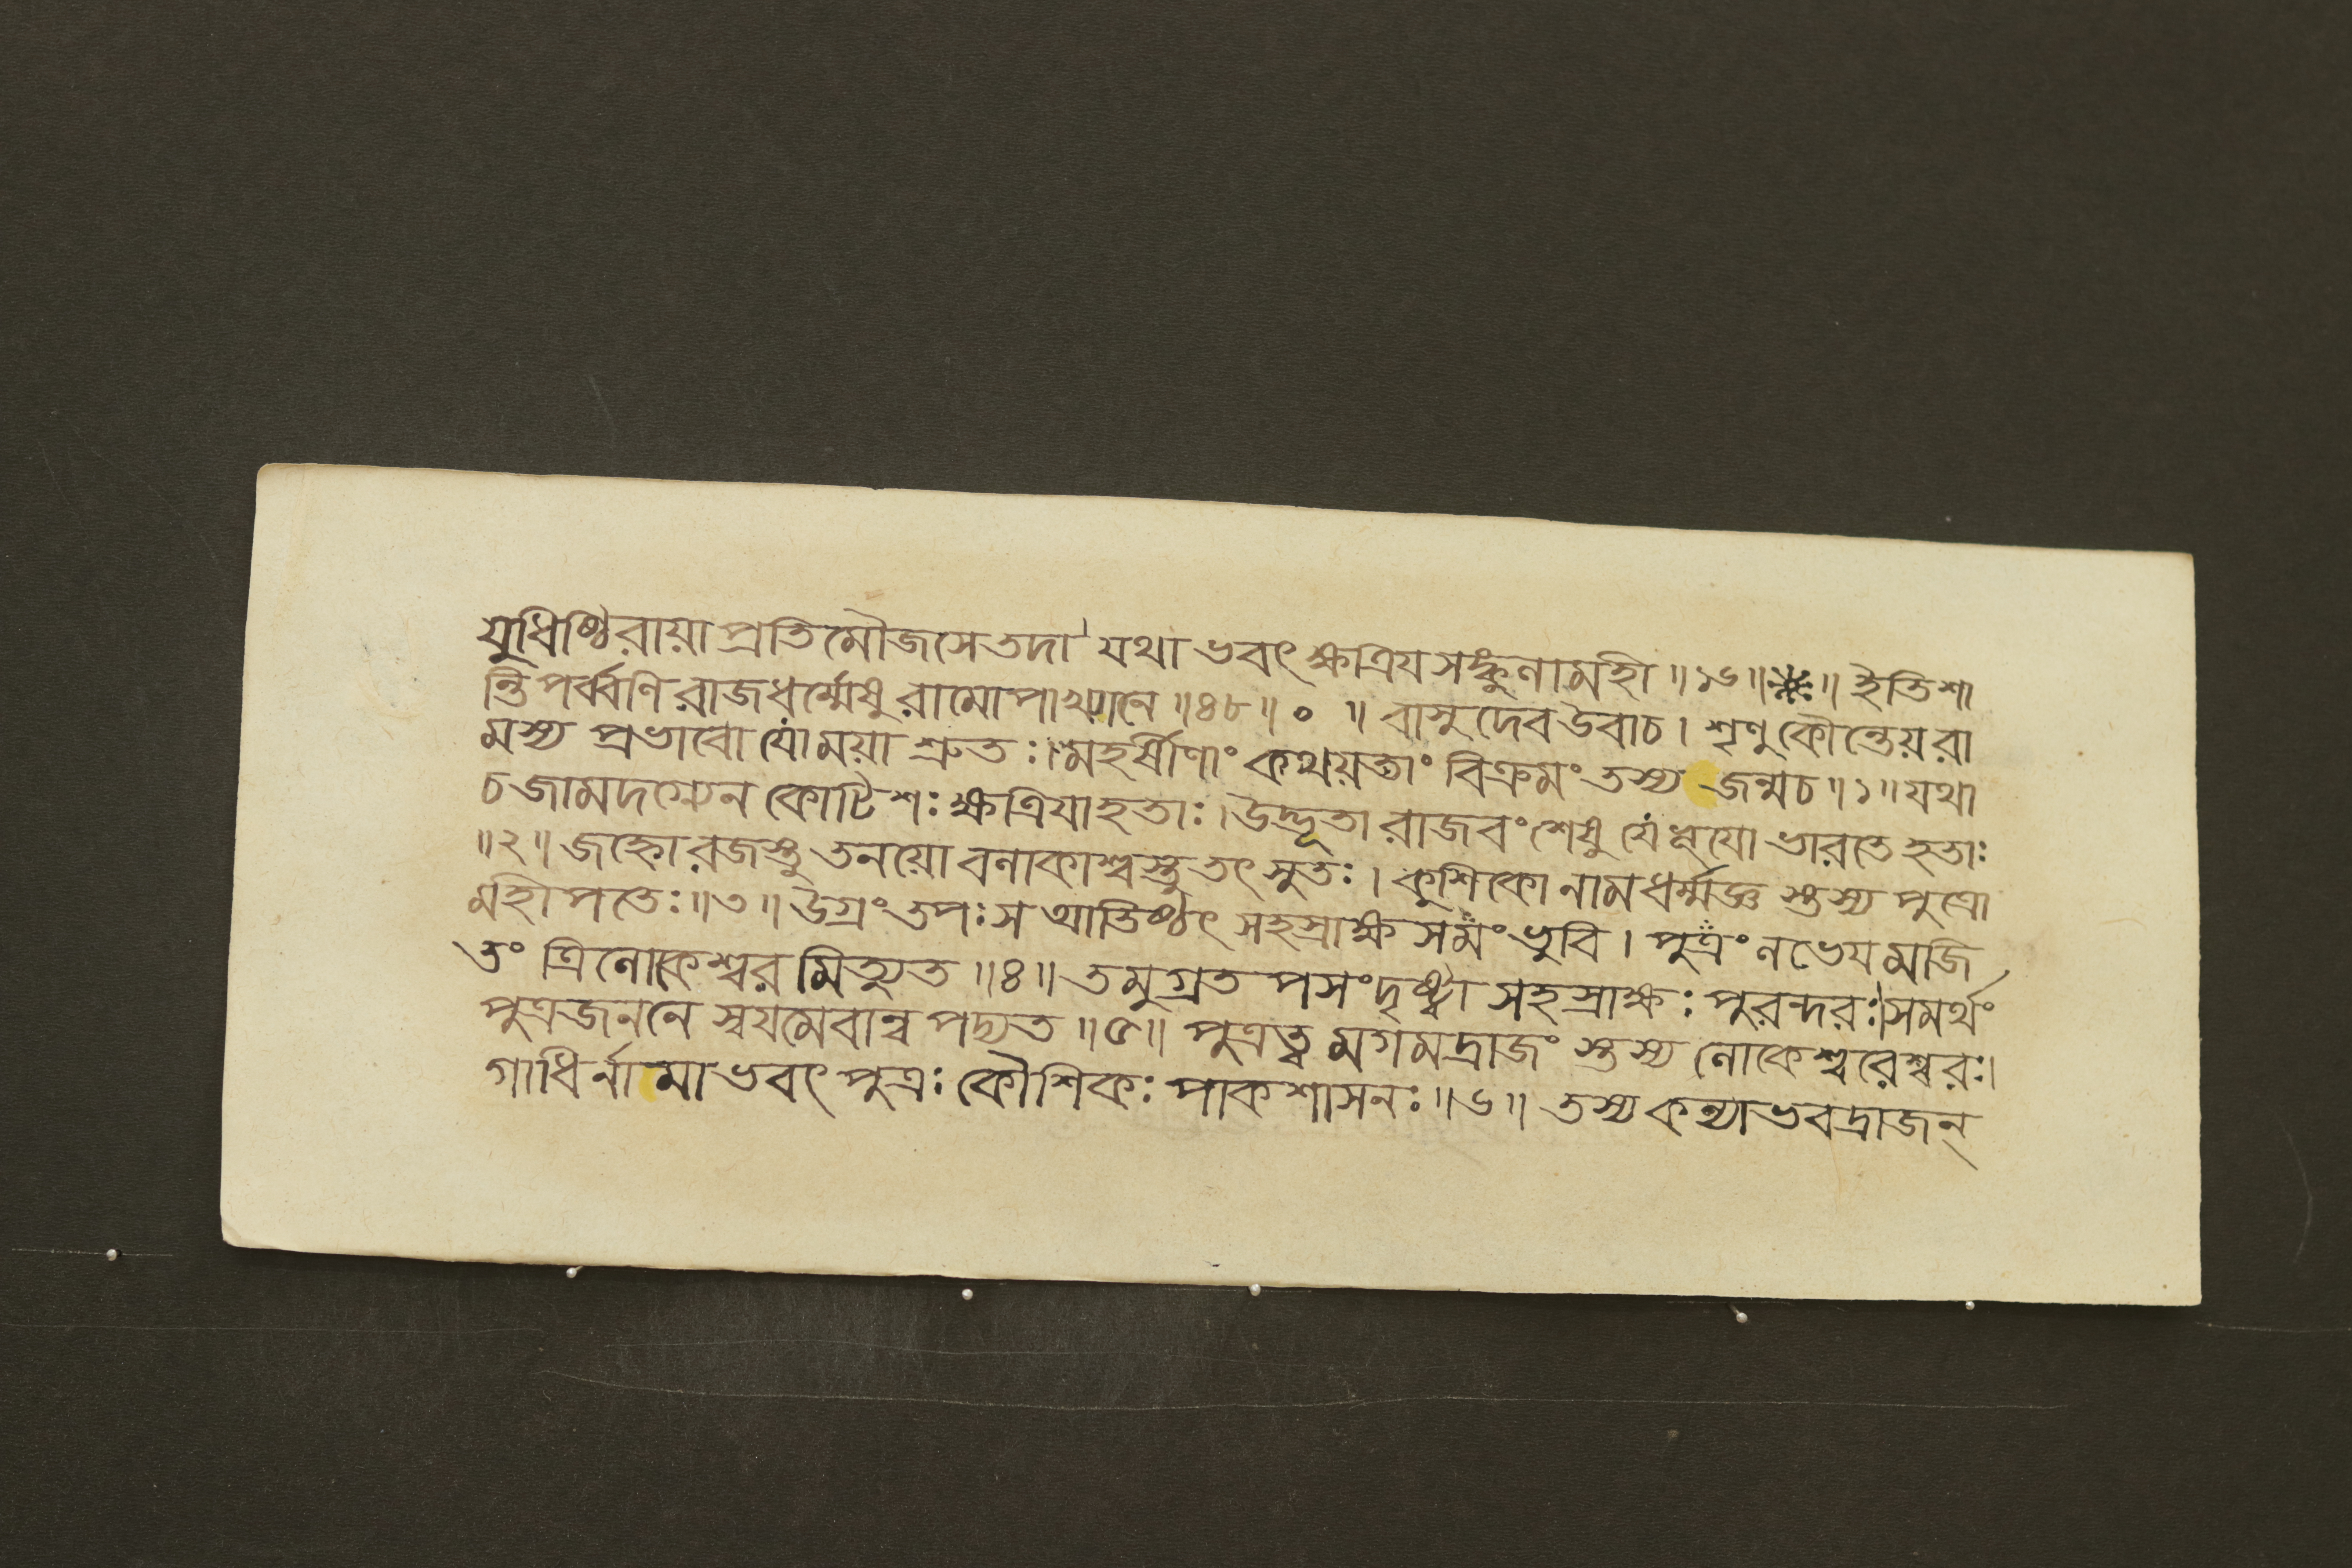 যুধিষ্ঠিরায়াপ্রতিমৌজসেতদা যথাভবৎক্ষত্রিযসঙ্কুলামহী ॥১৬॥❋॥ ইতিশা
ন্তিপর্ব্বণিরাজধর্ম্মেষুরামোপাখ্যানে ॥৪৮॥ ০ ॥ বাসুদেবউবাচ। শৃণুকৌন্তেয়রা
মস্য প্রভাবো যোময়া শ্রুতঃ। মহর্ষীণাং কথয়তাং বিক্রমং তস্য জন্মচ॥১॥ যথা
চজামদগ্ন্যেন কোটিশঃ ক্ষত্রিযাহতাঃ। উদ্ভূতা রাজবংশেষু যেভূযো ভারতে হতাঃ
॥২॥ জহ্নোরজস্তু তনয়ো বলাকাশ্বস্তু তৎসুতঃ। কুশিকো নামধর্ম্মজ্ঞ স্তস্য পুত্রো
মহীপতেঃ॥৩॥ উগ্রং তপঃ সআতিষ্ঠৎ সহস্রাক্ষসমং ভুবি। পুত্রং লভেযমজি
তং ত্রিলোকেশ্বরমিত্যুত ॥৪॥ তমুগ্রতপসংদৃষ্ট্বা সহস্রাক্ষঃ পুরন্দরঃ। সমর্থং
পুত্রজননে স্বযমেবান্বপদ্যত ॥৫॥ পুত্রত্বমগমদ্রাজং স্তস্য লোকেশ্বরেশ্বরঃ।
গাধির্নামাভবৎ পুত্রঃ কৌশিকঃ পাকশাসনঃ ॥৬॥ তস্যকন্যাভবদ্রাজন্